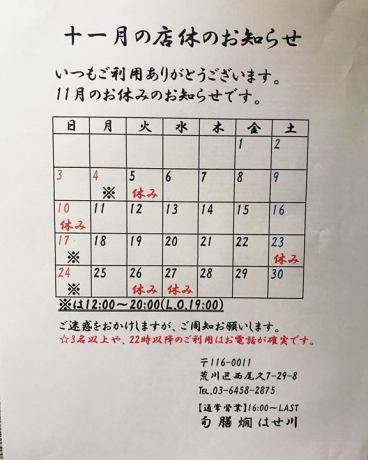 十一月の店休のお知らせ
いつもご利用ありがとうございます。
11月のお休みのお知らせです。
日 月 火 水 木 金 土
1 2
3 4 5 6 7 8 9
※ 休み
10 11 12 13 14 15 16
休み
17 18 19 20 21 22 23
※ 休み
24 25 26 27 28 29 30
※ 休み 休み
※は12:00～20:00(L.O.19:00)
ご迷惑をおかけしますが、ご周知お願いします。
☆3名以上や、22時以降のご利用はお電話が確実です。
〒116-0011
荒川区西尾久7-29-8
TEL,03-6458-2875
【通常営業】16:00～LAST
旬膳燗 はせ川